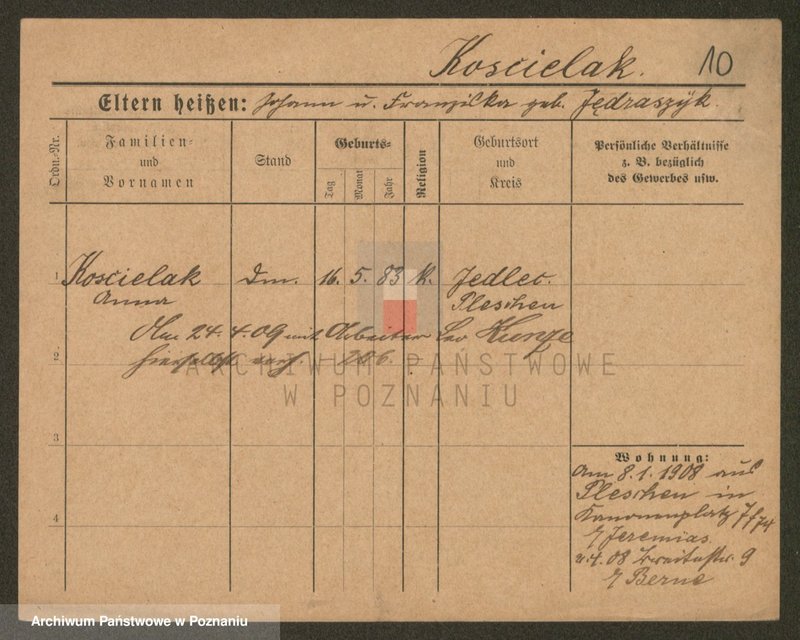 Koscielak. 10
Eltern heißen: Johann u. Franziska geb. Jędraszyk.
Ordn.-Nr.
Familien- und Vornamen
Stand
Geburts-
Tag
Monat
Jahr
Religion
Geburtsort und Kreis
Persönliche Verhältnisse z. B. bezüglich des Gewerbes usw.
1 Koscielak Dm. 16. 5. 83 K. Jedlec.
Anna Pleschen
Am 24.4.09 mit Arbeiter Leo Kunze
2 hierselbst verh. 206.
ARCHIWUM PAŃSTWOWE
W POZNANIU
3
Wohnung:
Am 8.1.1908 aus
Pleschen in
Kanonenplatz
Jeremias
2.4.08 Breitestr. 9
Berne
4
Archiwum Państwowe w Poznaniu